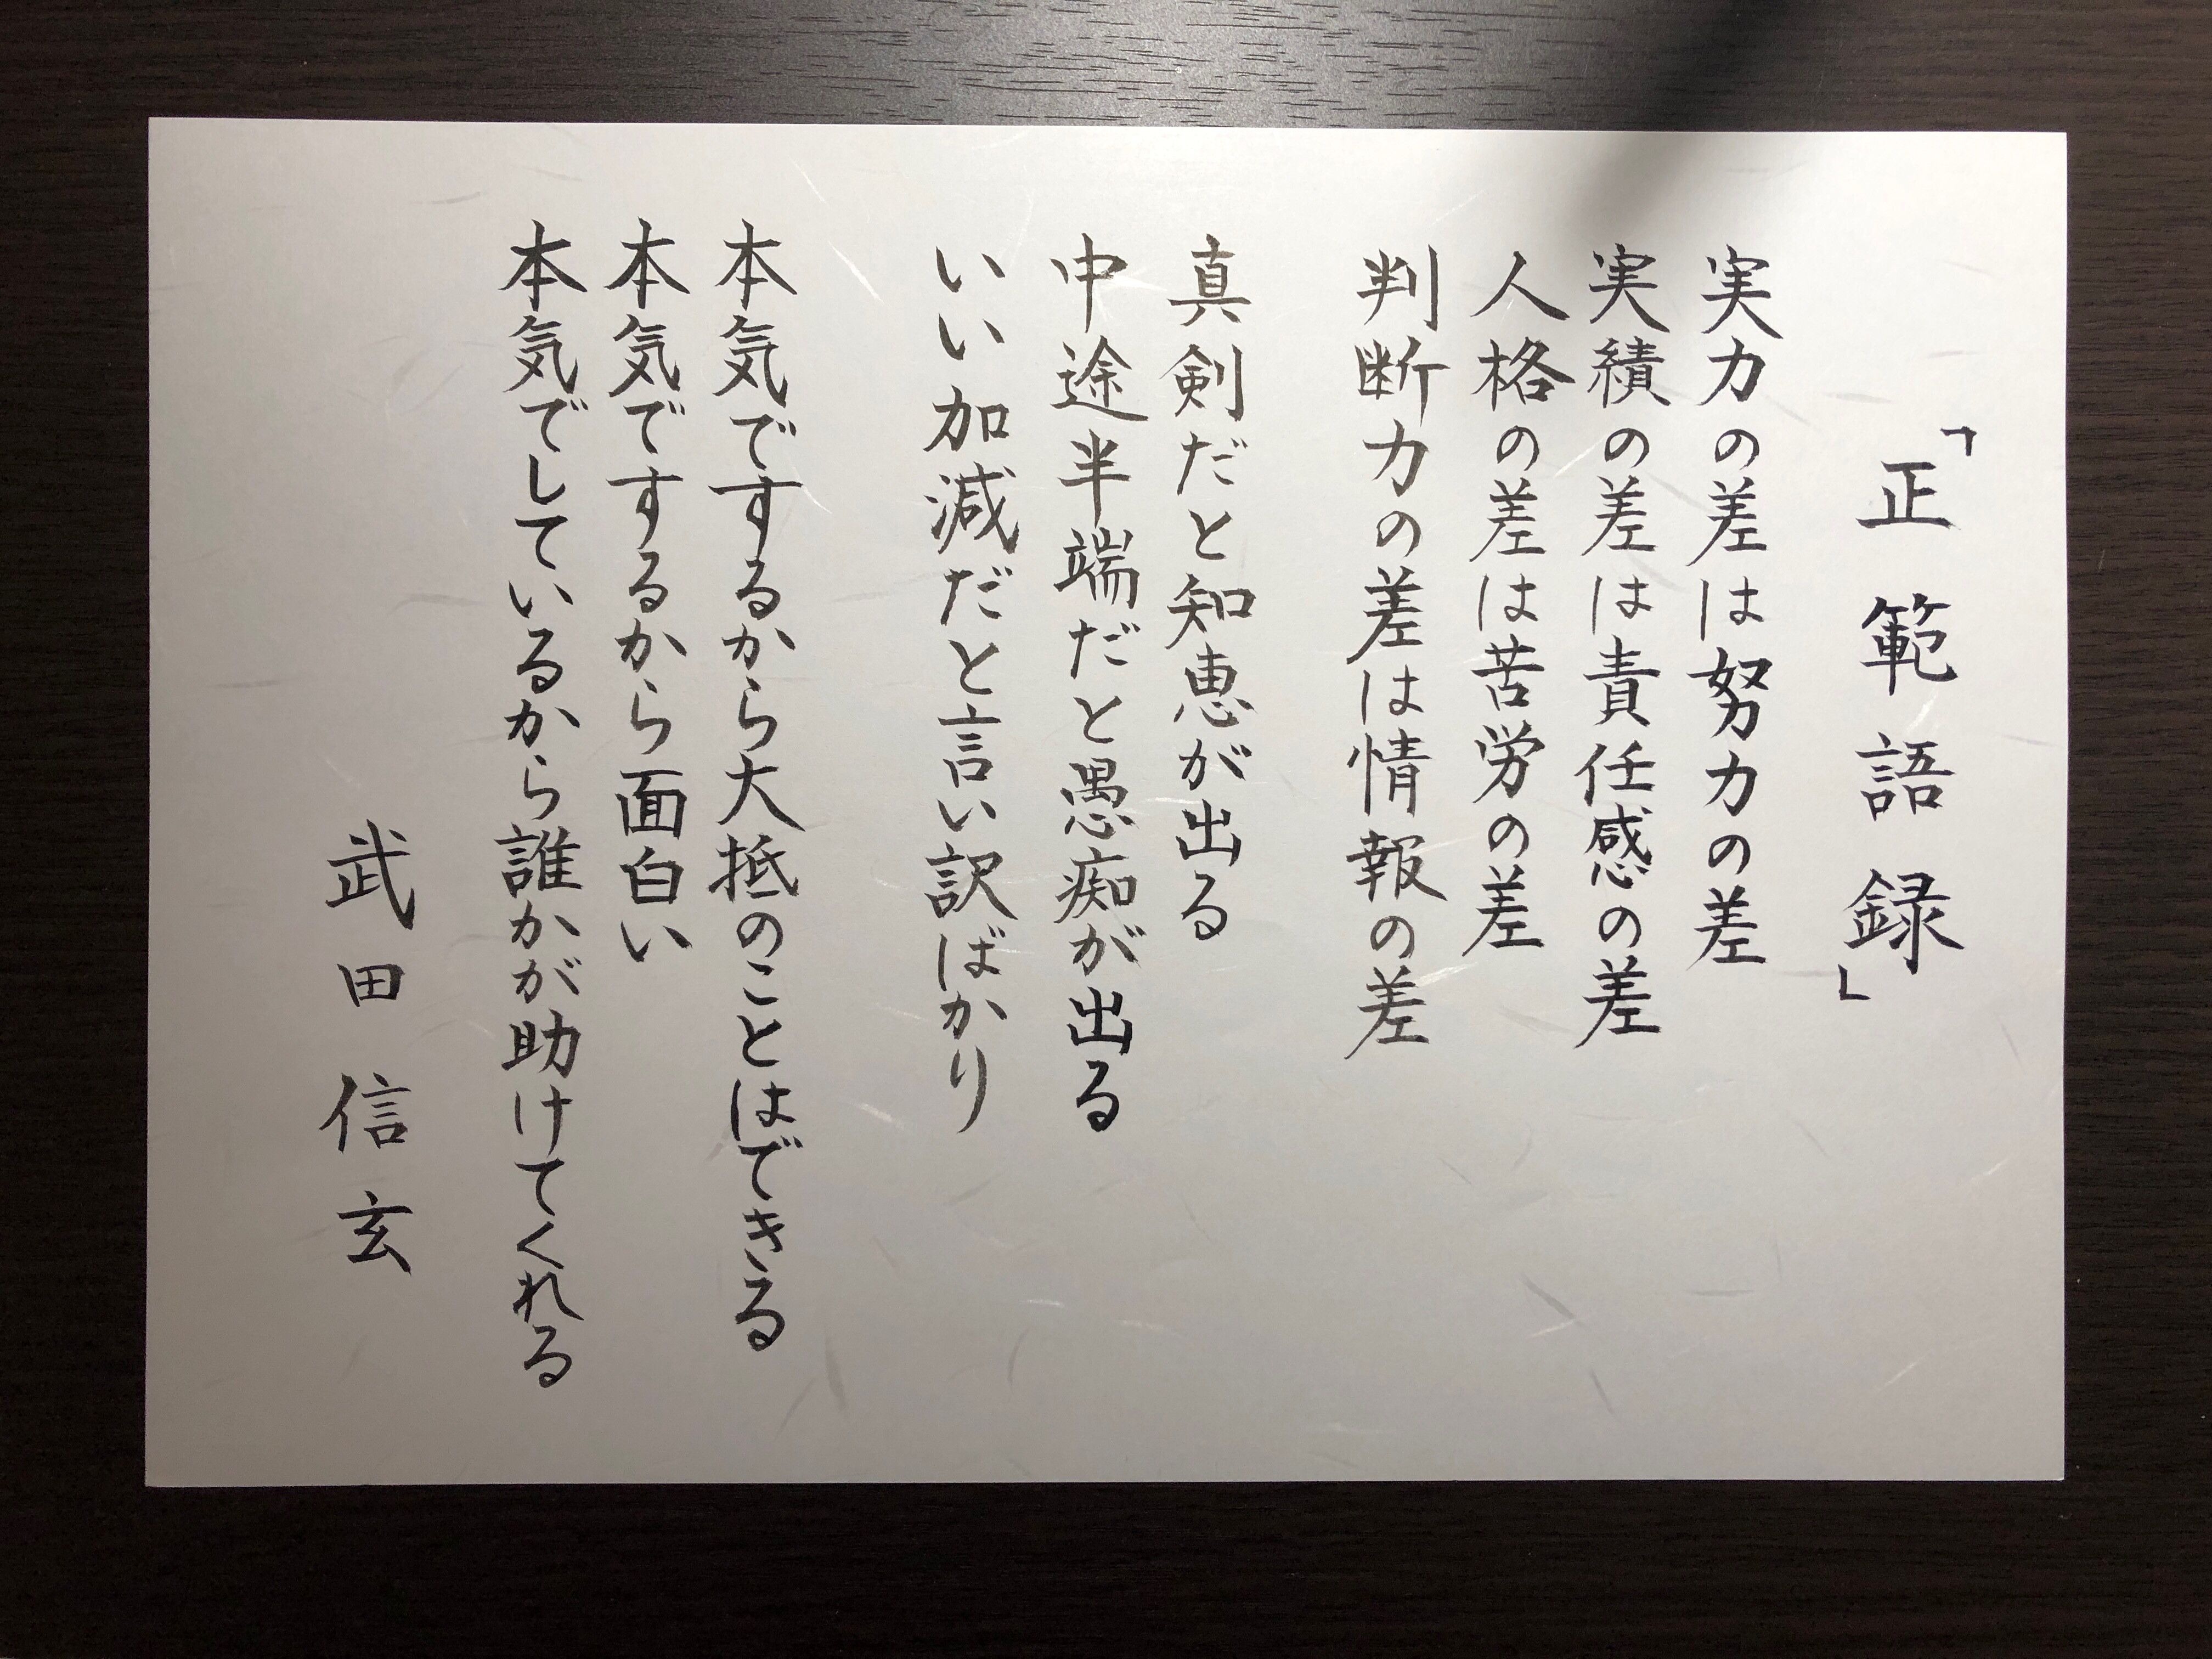 「正範語録」
実力の差は努力の差
実績の差は責任感の差
人格の差は苦労の差
判断力の差は情報の差
真剣だと知恵が出る
中途半端だと愚痴が出る
いい加減だと言い訳ばかり
本気でするから大抵のことはできる
本気でするから面白い
本気でしているから誰かが助けてくれる
武田信玄